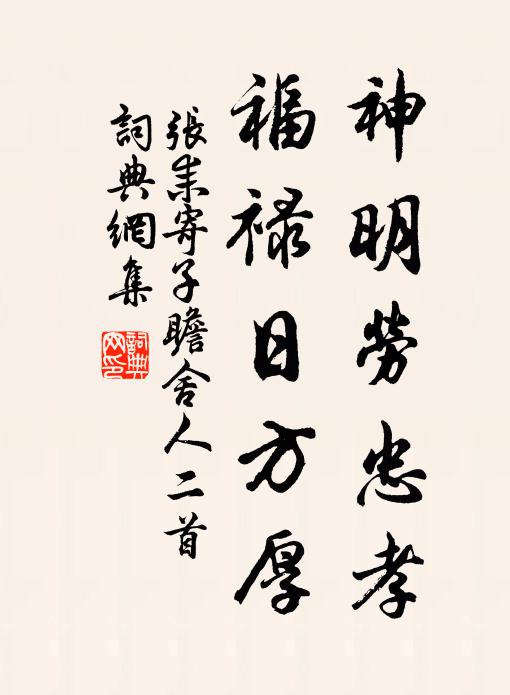 神明勞忠孝
福禄日方厚
張耒寄子瞻舍人二首
詞典網集
詞典
网印